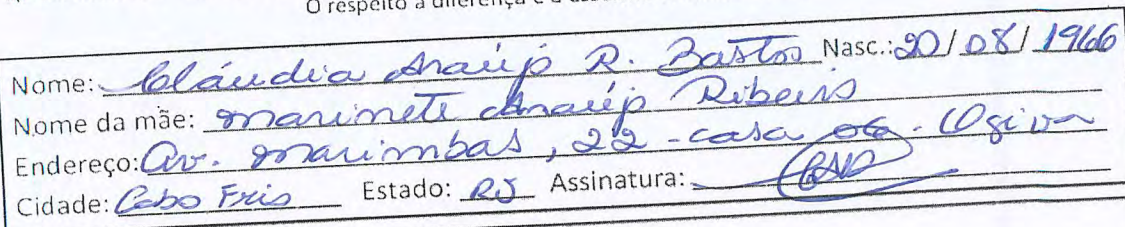 O respeito à diferença é a
Nome: Cláudia Araújo R. Bastos Nasc.: 20/08/1966
Nome da mãe: Marinete Araújo Ribeiro
Endereço: Av. Marimbas, 22 - casa - Ogiva
Cidade: Cabo Frio Estado: RJ Assinatura: